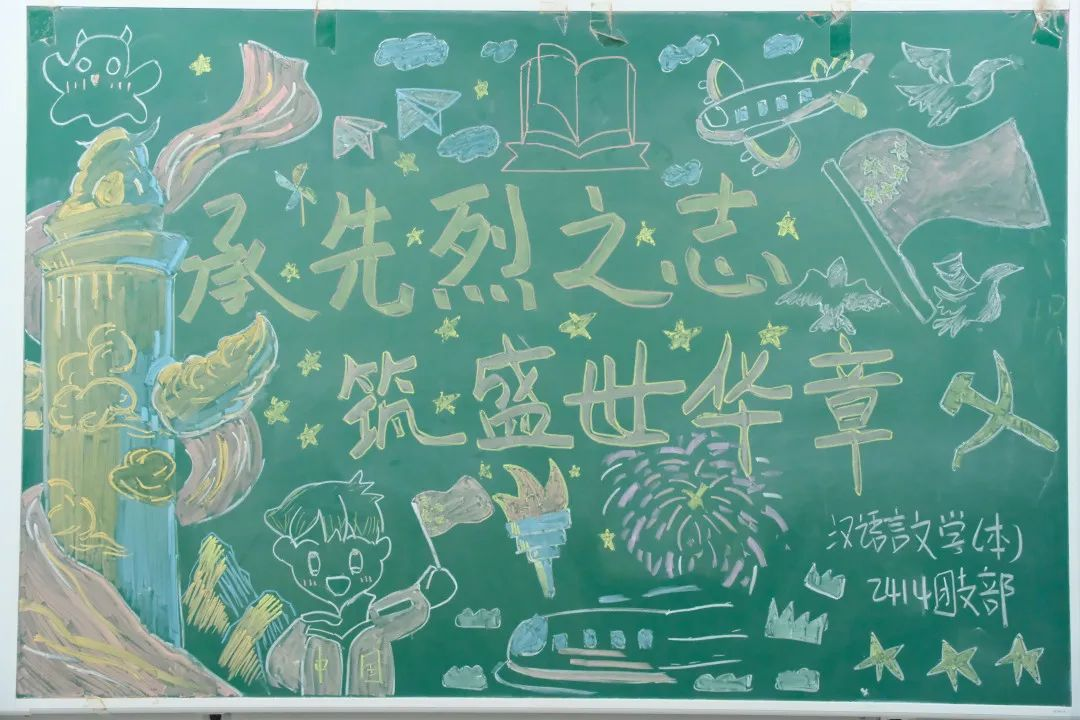 承先烈之志
筑盛世华章
汉语言文学(本)
2414团支部
中国